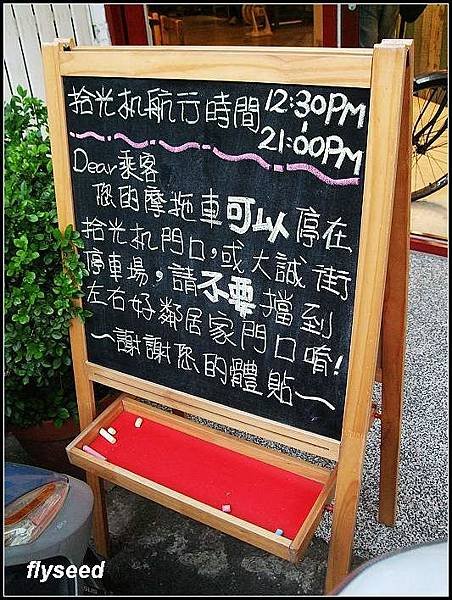 拾光机航行時間 12:30PM
|
21:00PM
Dear乘客
您的摩拖車可以停在
拾光机門口,或大誠街
停車場,請不要擋到
左右好鄰居家門口唷!
～謝謝您的體貼～
flyseed